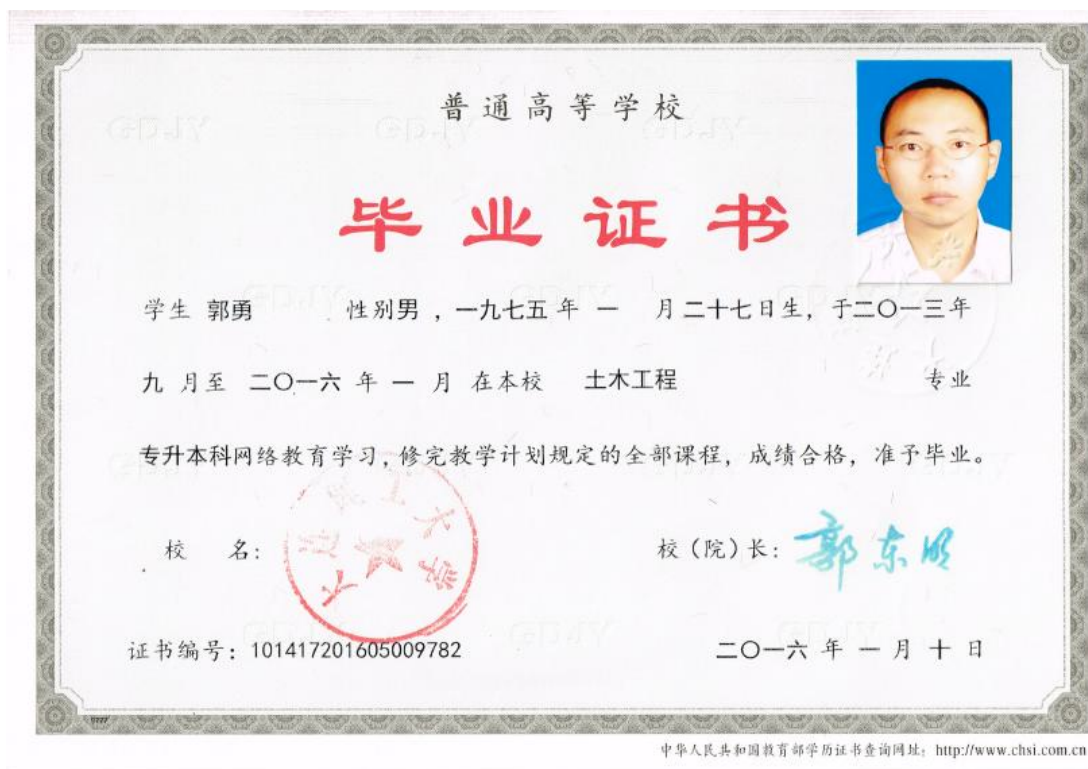 普通高等学校
毕业证书
学生 郭勇 性别男，一九七五年 一 月二十七日生，于二〇一三年
九 月至 二〇一六 年 一 月 在本校 土木工程 专业
专升本科网络教育学习，修完教学计划规定的全部课程，成绩合格，准予毕业。
大连理工大学
校 名：
校（院）长：郭东明
证书编号：101417201605009782
二〇一六 年 一 月 十 日
中华人民共和国教育部学历证书查询网址：http://www.chsi.com.cn